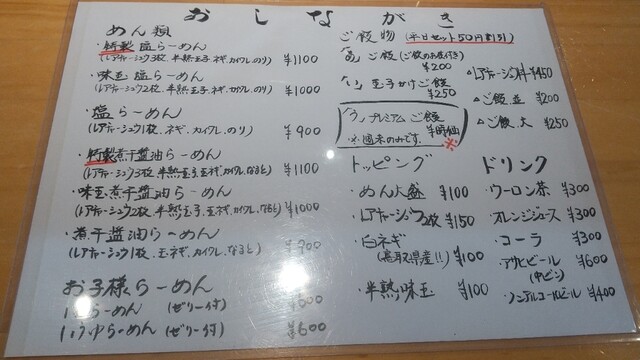 おしながき
めん類
・特製塩らーめん
(レアチャーシュウ3枚、半熟玉子、ネギ、カイワレ、のり) ¥1100
・味玉塩らーめん
(レアチャーシュウ2枚、半熟玉子、ネギ、カイワレ、のり) ¥1000
・塩らーめん
(レアチャーシュウ1枚、ネギ、カイワレ、のり) ¥900
・特製煮干醤油らーめん
(レアチャーシュウ3枚、半熟玉子、玉ネギ、カイワレ、なると) ¥1100
・味玉煮干醤油らーめん
(レアチャーシュウ2枚、半熟玉子、玉ネギ、カイワレ、なると) ¥1000
・煮干醤油らーめん
(レアチャーシュウ1枚、玉ネギ、カイワレ、なると) ¥900
お子様らーめん
らーめん (ゼリー付) ¥600
しょうゆらーめん (ゼリー付) ¥600
ご飯物 (平日セット50円割引)
ご飯 (ご飯のお供付き)
¥200
玉子かけご飯
¥250
「う」プレミアムご飯
¥時価
※週末のみです。
※
△レアチャーシュウ丼 ¥450
△ご飯、並 ¥200
△ご飯、大 ¥250
トッピング
・めん大盛 ¥100
・レアチャーシュウ3枚 ¥150
・白ネギ
(鳥取県産!!) ¥100
・半熟味玉 ¥100
ドリンク
・ウーロン茶 ¥300
・オレンジジュース ¥300
・コーラ ¥300
・アサヒビール ¥600
(中ビン)
・ノンアルコールビール ¥400